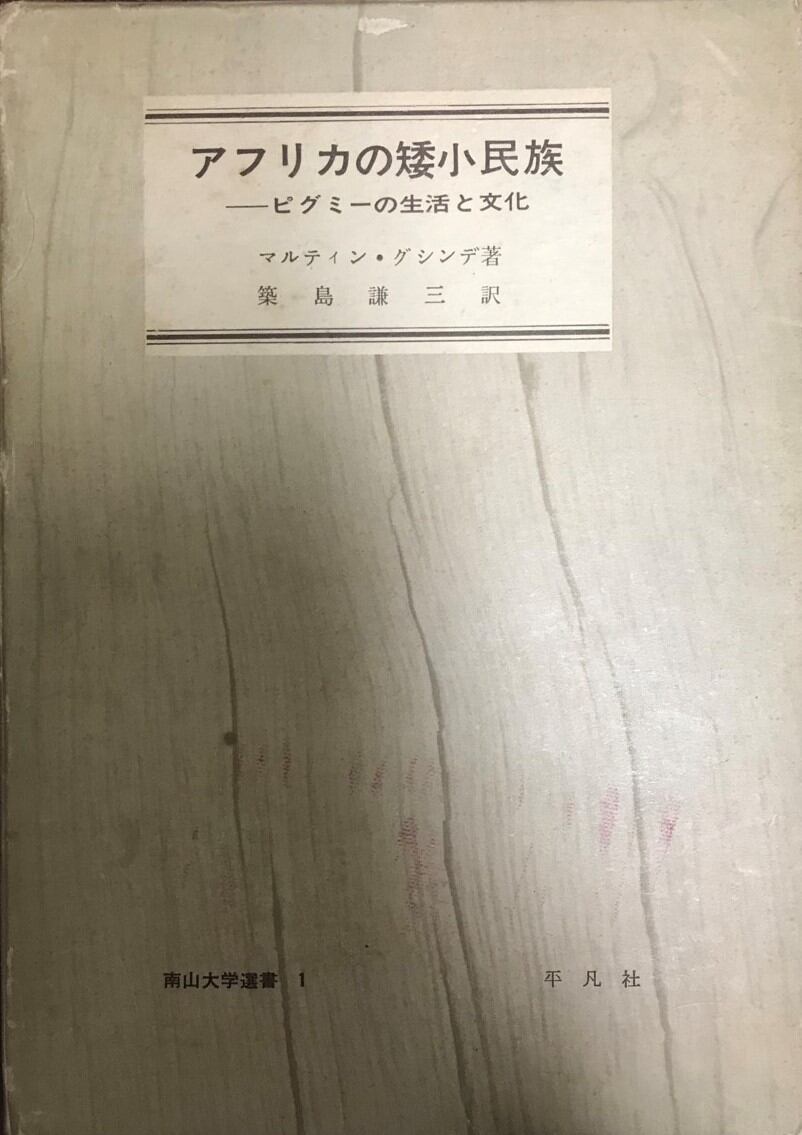 アフリカの矮小民族
——ピグミーの生活と文化
マルティン・グシンデ著
築島謙三訳
南山大学選書 1
平凡社